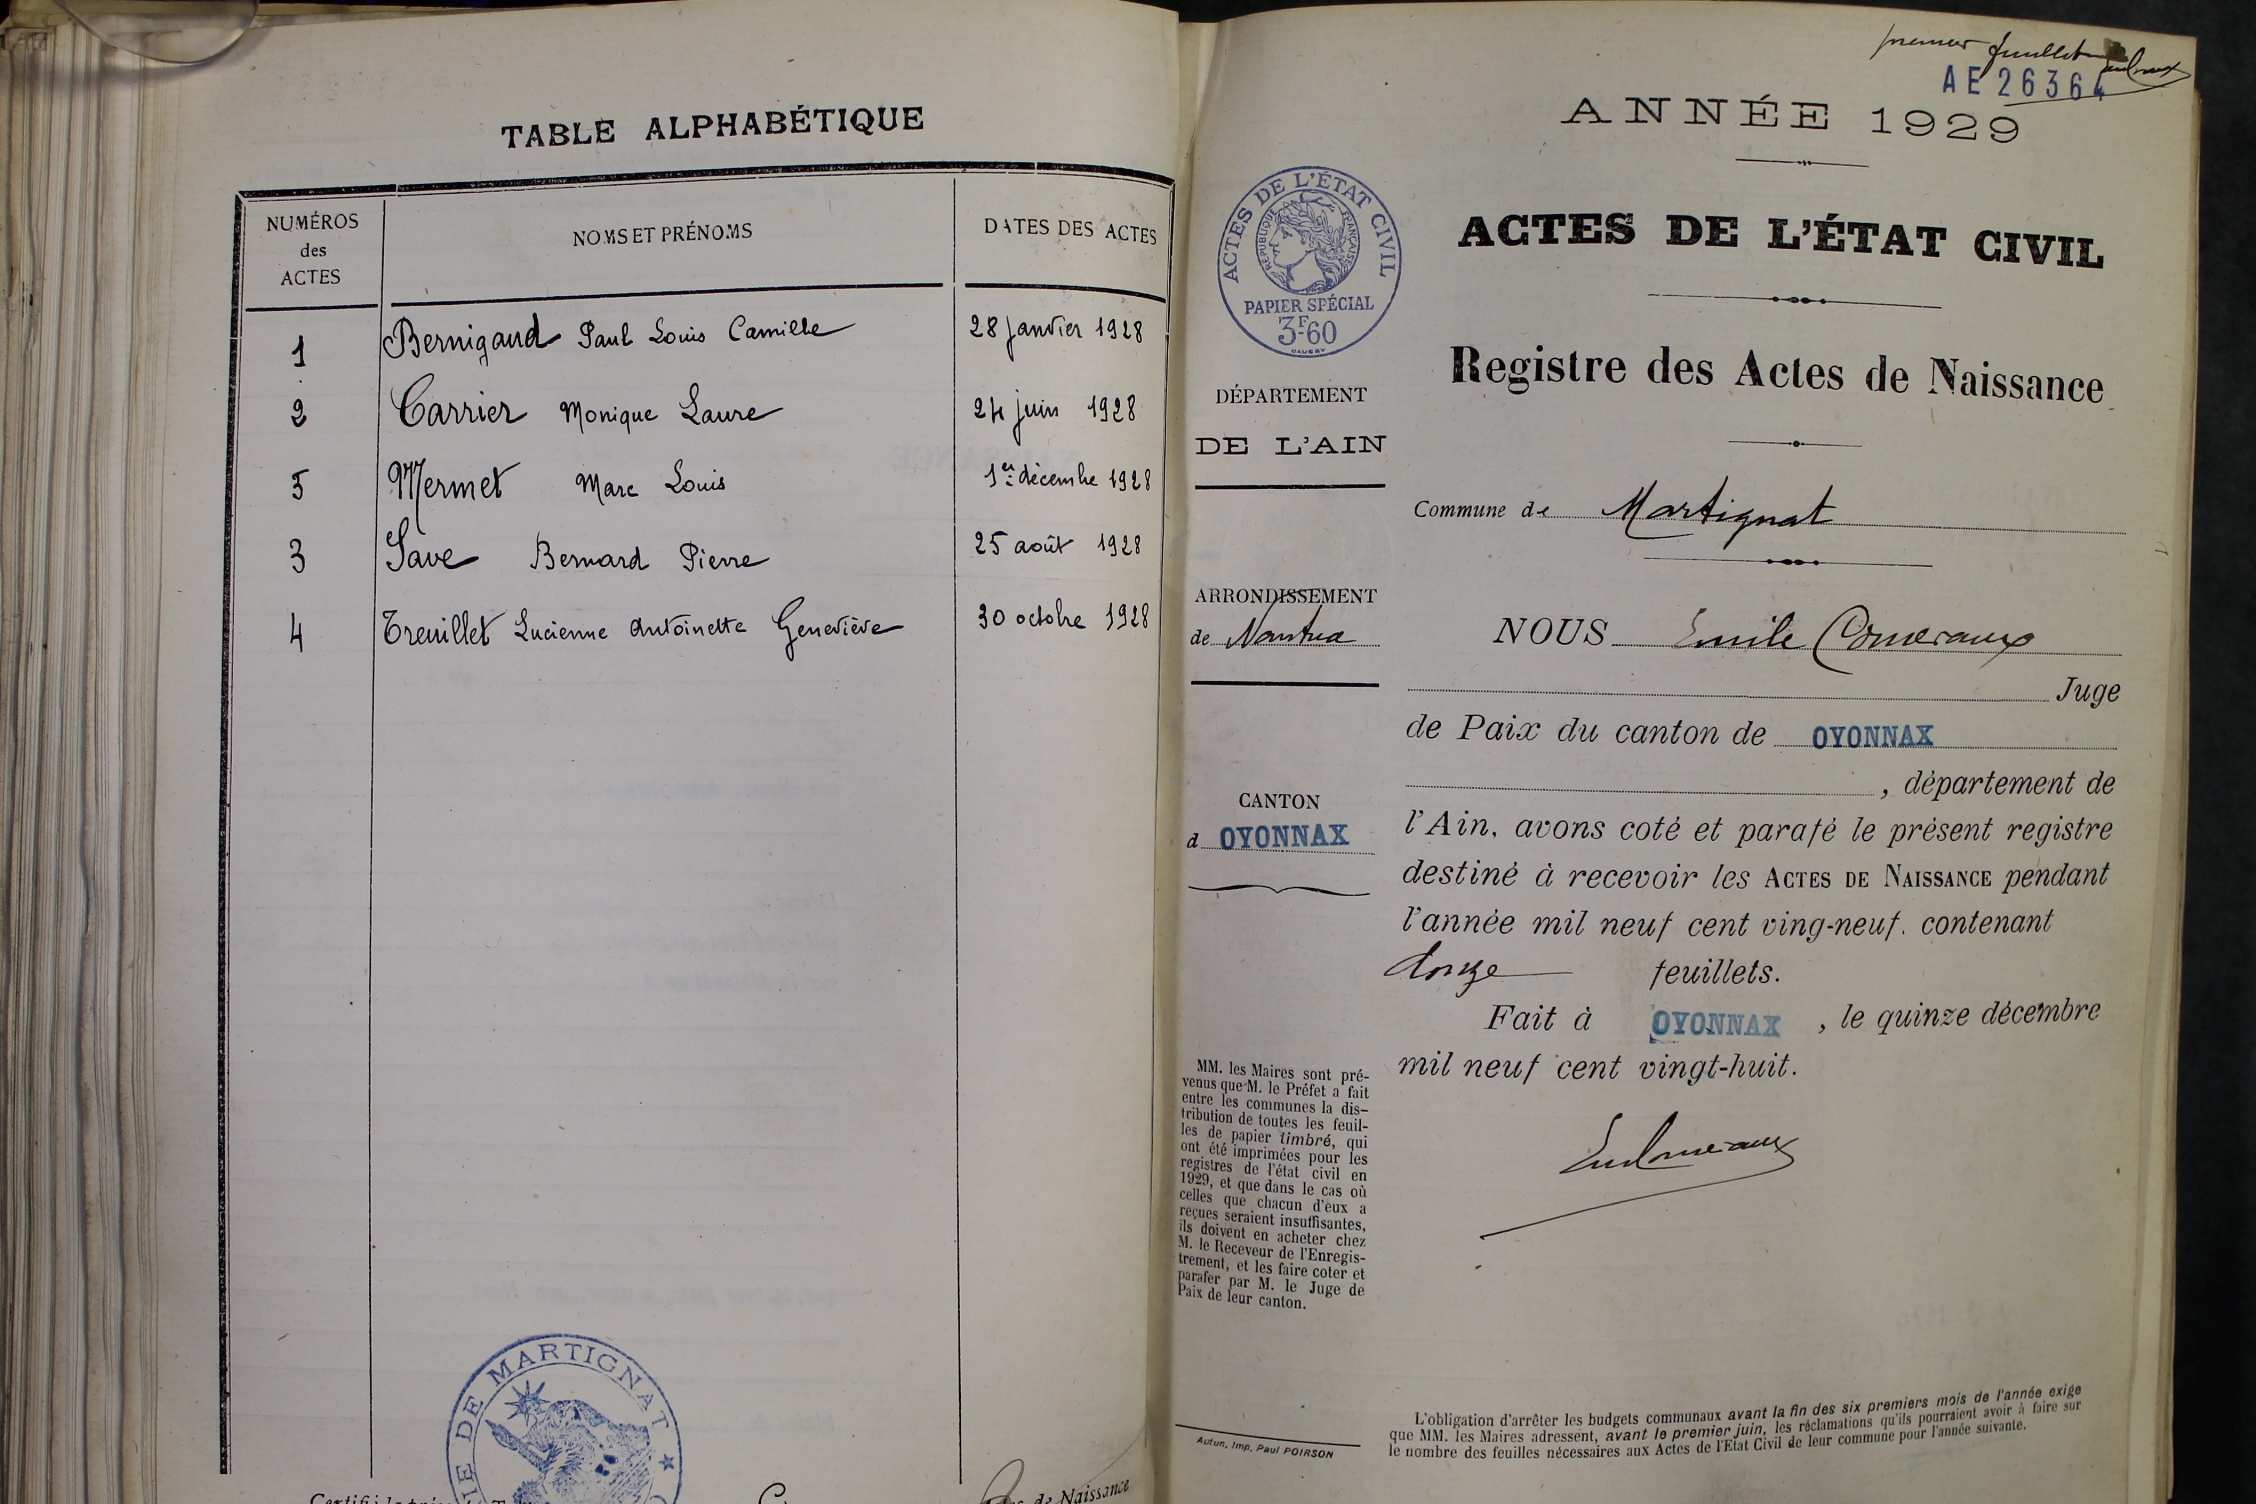 TABLE ALPHABÉTIQUE
NUMÉROS des ACTES
NOMS ET PRÉNOMS
DATES DES ACTES
1 Bernigaud Paul Louis Camille 28 janvier 1928
2 Carrier Monique Laure 24 juin 1928
5 Mermet Marc Louis 1er décembre 1928
3 Save Bernard Pierre 25 août 1928
4 Treuillet Lucienne Antoinette Geneviève 30 octobre 1928
DE MARTIGNAT
de Naissance
premier feuillet
AE 26364
ANNÉE 1929
ACTES DE L'ÉTAT CIVIL
RÉPUBLIQUE FRANÇAISE
PAPIER SPÉCIAL
3F60
ACTES DE L'ÉTAT CIVIL
Registre des Actes de Naissance
DÉPARTEMENT
DE L'AIN
Commune de Martignat
ARRONDISSEMENT
de Nantua
NOUS Emile Comeraux
Juge
de Paix du canton de OYONNAX
, département de
CANTON
d OYONNAX
l'Ain, avons coté et parafé le présent registre
destiné à recevoir les ACTES DE NAISSANCE pendant
l'année mil neuf cent ving-neuf. contenant
douze feuillets.
Fait à OYONNAX , le quinze décembre
mil neuf cent vingt-huit.
MM. les Maires sont pré-
venus que M. le Préfet a fait
entre les communes la dis-
tribution de toutes les feuil-
les de papier timbré, qui
ont été imprimées pour les
registres de l'état civil en
1929, et que dans le cas où
celles que chacun d'eux a
reçues seraient insuffisantes,
ils doivent en acheter chez
M. le Receveur de l'Enregis-
trement, et les faire coter et
parafer par M. le Juge de
Paix de leur canton.
Autun, Imp. Paul POIRSON
L'obligation d'arrêter les budgets communaux avant la fin des six premiers mois de l'année exige
que MM. les Maires adressent, avant le premier juin, les réclamations qu'ils pourraient avoir à faire sur
le nombre des feuilles nécessaires aux Actes de l'Etat Civil de leur commune pour l'année suivante.